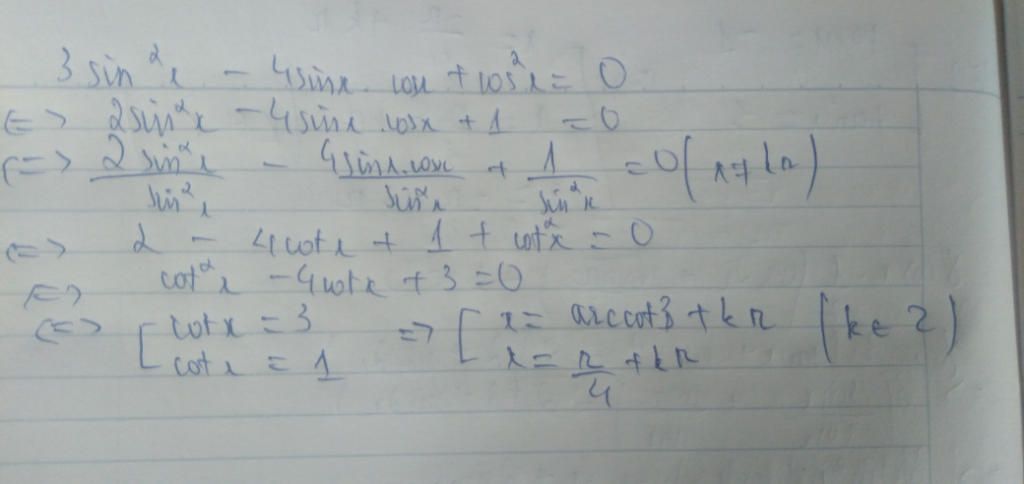 3 sin²x - 4sinx . cosx + cos²x = 0
<=> 2sin²x - 4sinx . cosx + 1 = 0
<=> 2sin²x/sin²x - 4sinx.cosx/sin²x + 1/sin²x = 0 (x ≠ kπ)
<=> 2 - 4cotx + 1 + cot²x = 0
<=> cot²x - 4cotx + 3 = 0
<=> [ cotx = 3 => [ x = arccot3 + kπ (k ∈ Z)
cotx = 1 x = π/4 + kπ